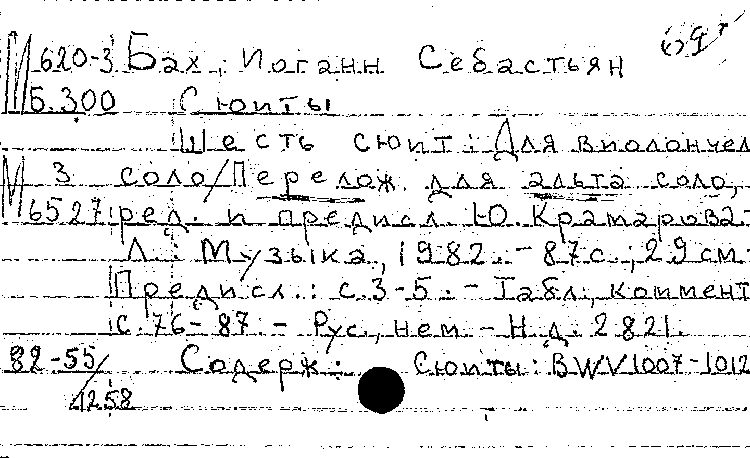 М620-3 Бах, Иоганн Себастьян
Б.300 Сюиты
Шесть сюит: Для виолончел
М 3 соло/Перелож. для альта соло,
6527 ред. и предисл Ю. Крамарова.
Л.: Музыка, 1982. - 87с.; 29см.
Предисл.: с.3-5. - Табл., коммент
с.76-87. - Рус., нем - Н.д. 2821.
82-55/ Содерж: Сюиты: BWV1007-1012
4258